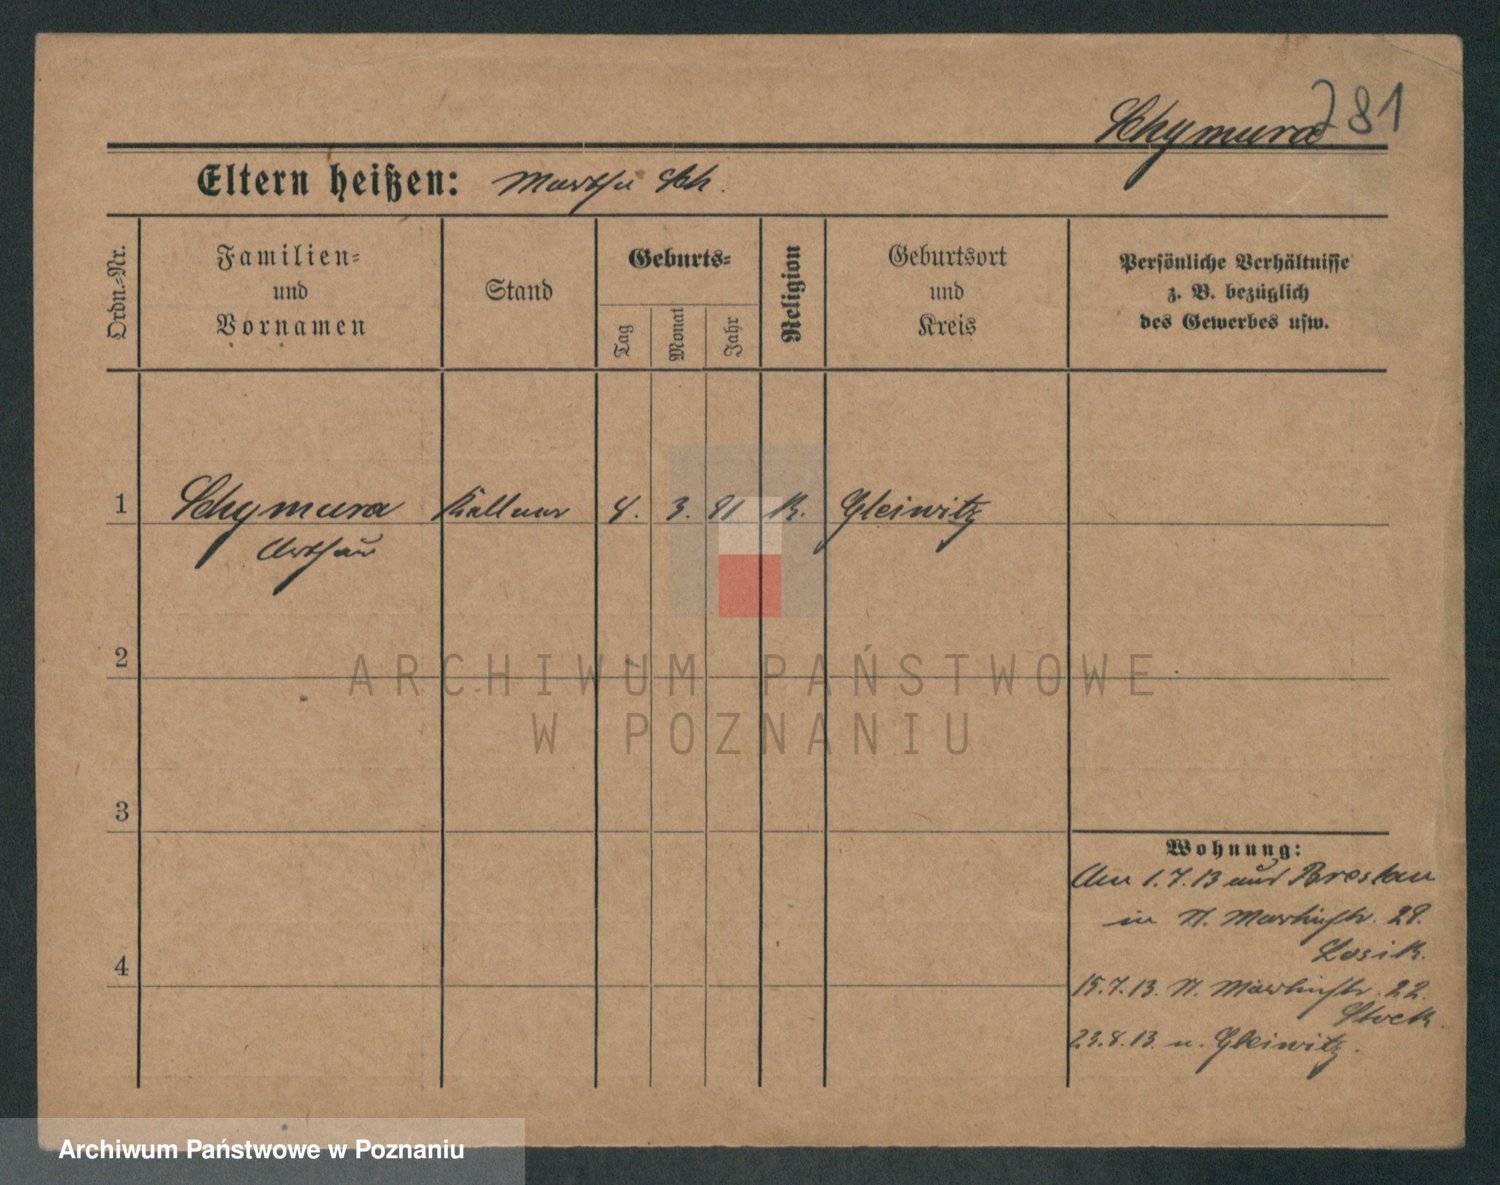 Schymura
781
Eltern heißen: Martha Sch.
Ordn.=Nr.
Familien=
und
Vornamen
Stand
Geburts=
Tag
Monat
Jahr
Religion
Geburtsort
und
Kreis
Persönliche Verhältnisse
z. B. bezüglich
des Gewerbes usw.
1 Schymura Kellner 8. 3. 91 K. Gleiwitz
Arthur
2
3
4
Wohnung:
Am 1.7.13 aus Breslau
in St. Martinstr. 28.
Losik.
15.7.13. St. Martinstr. 22.
Stock.
23.8.13. n. Gleiwitz.
ARCHIWUM PAŃSTWOWE
W POZNANIU
Archiwum Państwowe w Poznaniu